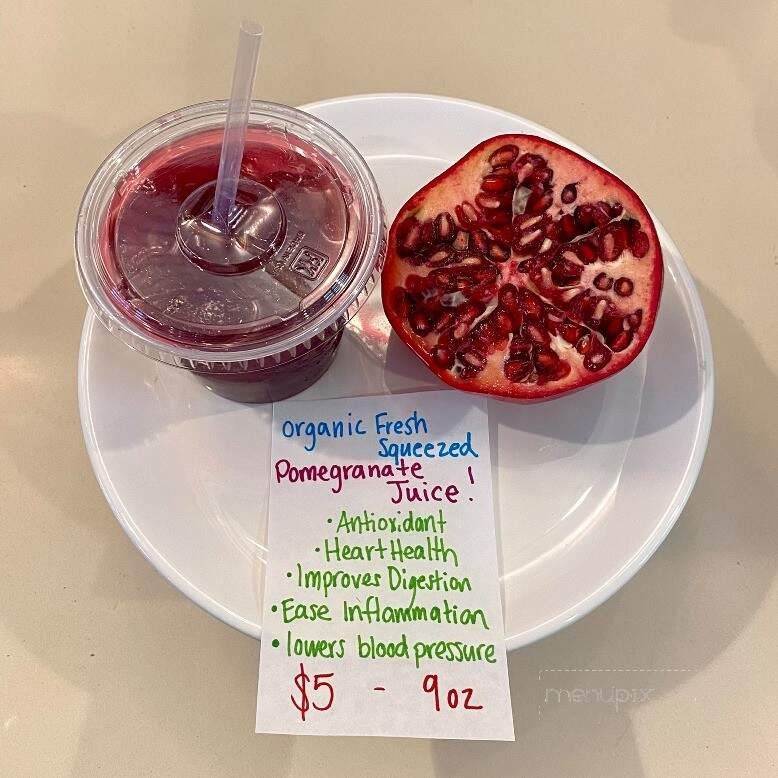 organic Fresh
Squeezed
Pomegranate
Juice!
• Antioxidant
• Heart Health
• Improves Digestion
• Ease Inflammation
• lowers blood pressure
$5 - 9oz
menupix